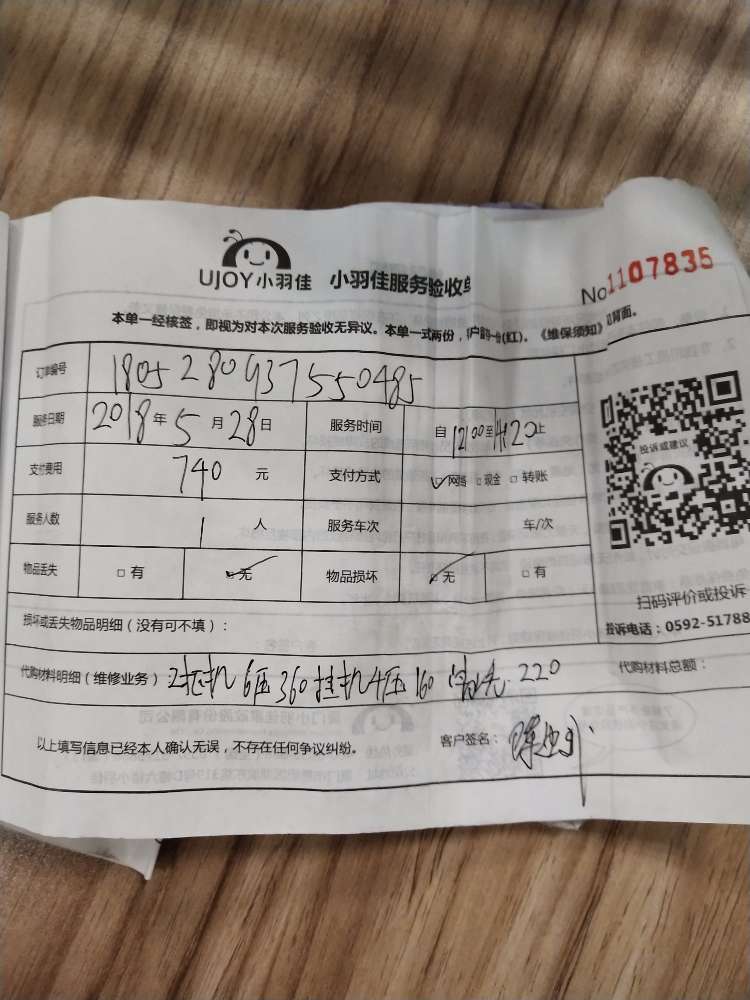 UJOY小羽佳 小羽佳服务验收单
No1107835
本单一经核签，即视为对本次服务验收无异议。本单一式两份，客户留一份(红)。《维保须知》见背面。
订单编号 1805280937550485
服务日期 2018年5月28日 服务时间 自12:00至14:20止
支付费用 740元 支付方式 ☑网络 □现金 □转账
服务人数 1人 服务车次 车/次
物品丢失 □有 ☑无 物品损坏 ☑无 □有
投诉或建议
扫码评价或投诉
投诉电话：0592-51788
损坏或丢失物品明细（没有可不填）：
代购材料明细（维修业务）： 挂机6压360挂机4压160 220
代购材料总额：
以上填写信息已经本人确认无误，不存在任何争议纠纷。 客户签名：